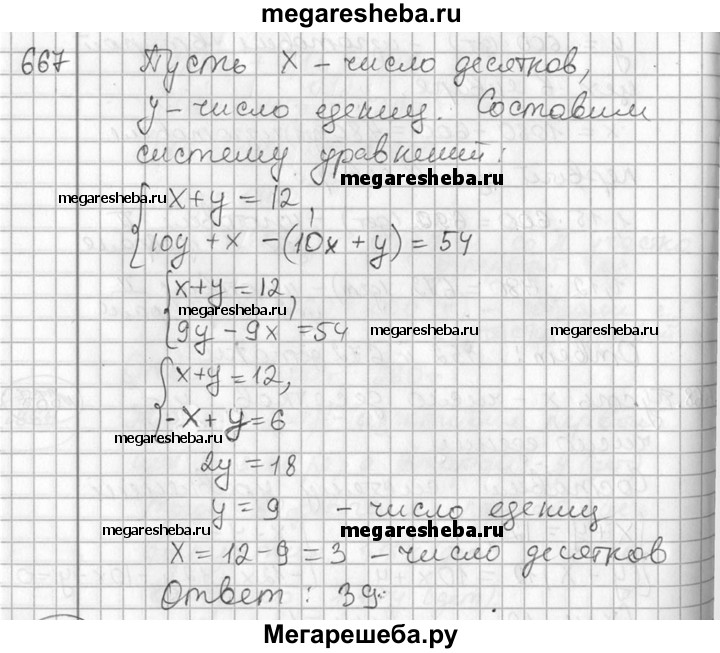 megaresheba.ru
667 Пусть x – число десятков,
y – число едениц. Составим
систему уравнений:
megaresheba.ru
megaresheba.ru
{ x + y = 12,
10y + x – (10x + y) = 54
{ x + y = 12,
megaresheba.ru
9y – 9x = 54
megaresheba.ru megaresheba.ru
{ x + y = 12,
– x + y = 6
megaresheba.ru
2y = 18
y = 9 – число едениц
megaresheba.ru megaresheba.ru
x = 12 – 9 = 3 – число десятков
Ответ: 39.
Мегарешеба.ру